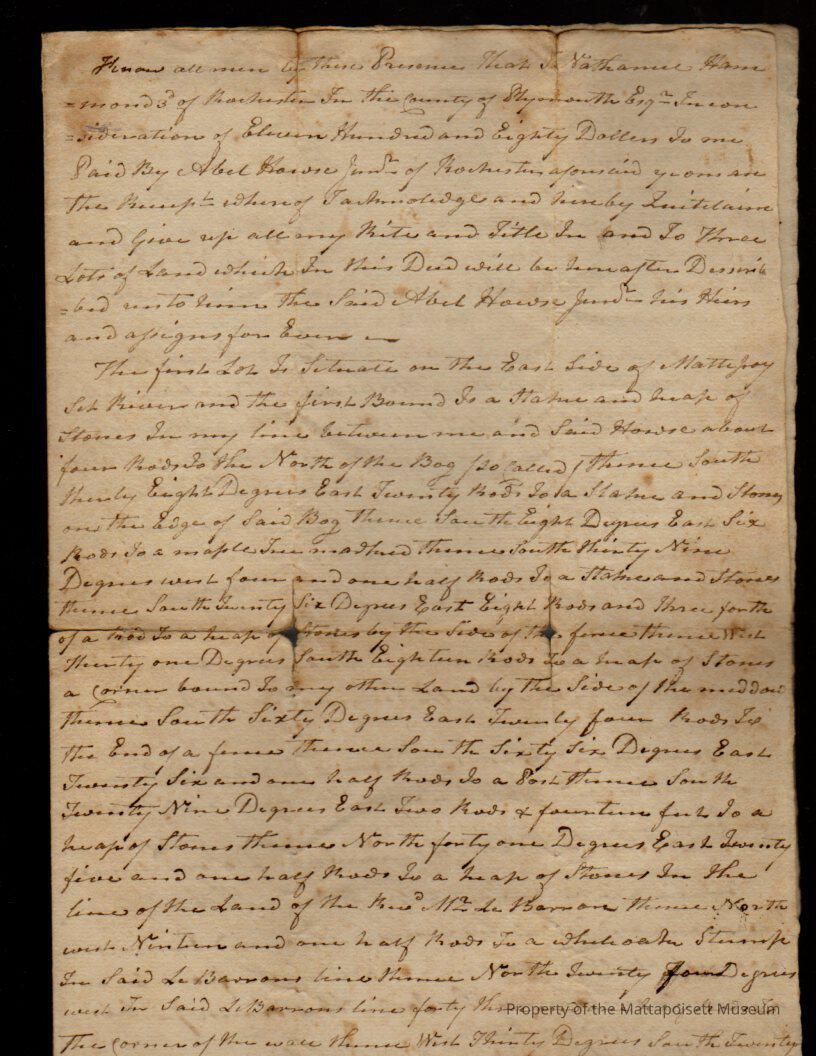 Know all men by these Presence That I Nathaniel Ham
=mond 3d of Rochester In the County of Plymouth Esqr In con
=sideration of Eleven Hundred and Eighty Dollers To me
Paid By Abel Howse Junr of Rochester aforesaid yeoman
the Receipt whereof I acknoledge and hereby Quitclaim
and Give up all my Rite and Title In and To Three
Lots of Land which In this Deed will be hereafter Describ
=bed unto him the Said Abel Howse Junr his Heirs
and assigns for Ever
The first Lot Is Situate on the East Side of Mattepoy
Set River and the first Bound Is a Stake and heap of
Stones In my line between me and Said Howse about
four Rods To the North of the Bog (so called) thence South
thirty Eight Degrees East Twenty Rods To a Stake and Stones
on the Edge of Said Bog thence South Eight Degrees East Six
Rods To a maple Tree marked thence South thirty Nine
Degrees west four and one half Rods To a Stake and Stones
thence South Twenty Six Degrees East Eight Rods and Three forth
of a Rod To a heap of Stones by the Side of the fence thence West
Thirty one Degrees South Eighteen Rods to a heap of Stones
a Corner bound To my other Land by the Side of the meddow
thence South Sixty Degrees East Twenty four Rods To
the End of a fence thence South Sixty Six Degrees East
Twenty Six and one half Rods To a Post thence South
Twenty Nine Degrees East Two Rods & fourteen feet To a
heap of Stones thence North forty one Degrees East Twenty
five and one half Rods To a heap of Stones In the
line of the Land of the Revd Mr Le Barron thence North
west Ninteen and one half Rods To a white oak Stump
In Said Le Barrons line thence North Twenty four Degrees
west In Said Le Barrons line forty
Property of the Mattapoisett Museum
The Corner of the wall thence West Thirty Degrees South Twenty